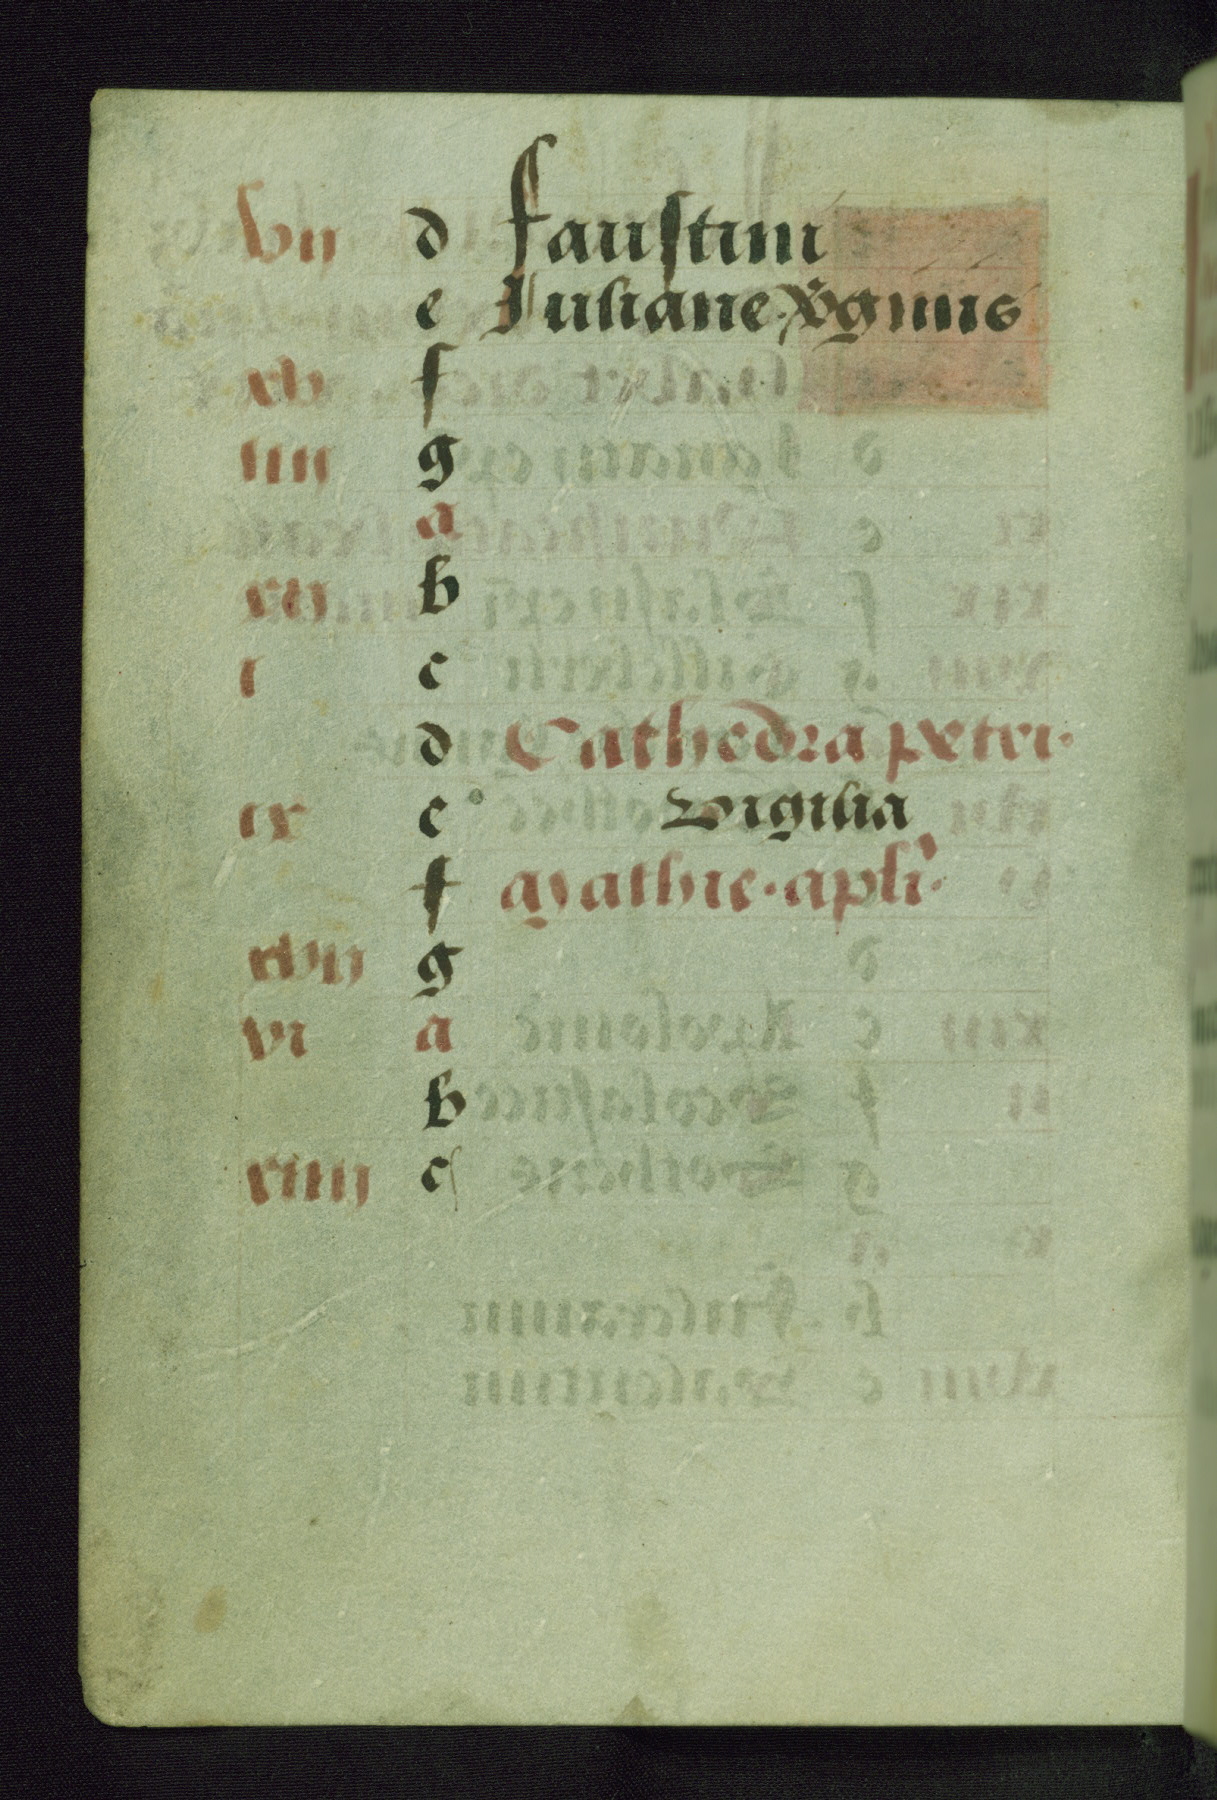 vii d faustini
e Juliane v̄ginis
xv f
iiii g
a
xii b
i c
d Cathedra petri.
ix e vigilia
f Mathie. apli.
xvii g
vi a
b
xiiii c